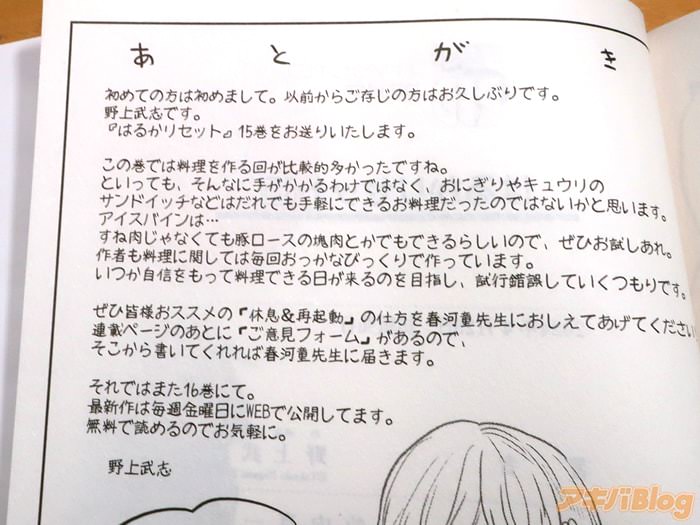 あとがき
初めての方は初めまして。以前からご存じの方はお久しぶりです。
野上武志です。
『はるかリセット』15巻をお送りいたします。
この巻では料理を作る回が比較的多かったですね。
といっても、そんなに手がかかるわけではなく、おにぎりやキュウリの
サンドイッチなどはだれでも手軽にできるお料理だったのではないかと思います。
アイスバインは…
すね肉じゃなくても豚ロースの塊肉とかでもできるらしいので、ぜひお試しあれ。
作者も料理に関しては毎回おっかなびっくりで作っています。
いつか自信をもって料理できる日が来るのを目指し、試行錯誤していくつもりです。
ぜひ皆様おススメの『休息&再起動』の仕方を春河童先生におしえてあげてください
連載ページのあとに『ご意見フォーム』があるので、
そこから書いてくれれば春河童先生に届きます。
それではまた16巻にて。
最新作は毎週金曜日にWEBで公開してます。
無料で読めるのでお気軽に。
野上武志
アキバBlog